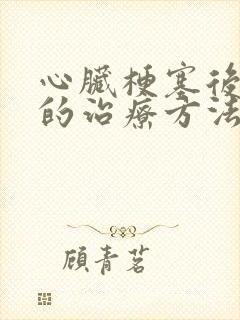 心臟梗塞後
的治療方法
顧青茗